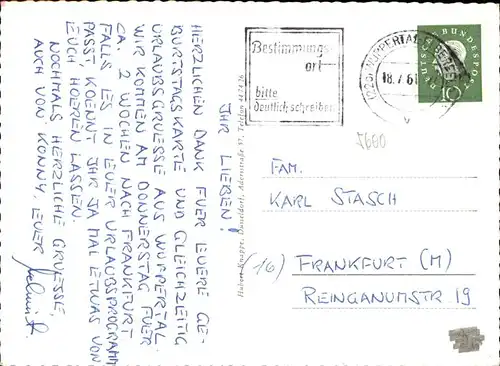 IHR LIEBEN!
HERZLICHEN DANK FUER EUERE GE-
BURTSTAGSKARTE UND GLEICHZEITIG
URLAUBSGRUESSE AUS WUPPERTAL.
WIR KOMMEN AM DONNERSTAG FUER
CA. 2 WOCHEN NACH FRANKFURT
FALLS ES IN EUER URLAUBSPROGRAMM
PASST KOENNT IHR JA MAL ETWAS VON
EUCH HOEREN LASSEN.
NOCHMALS HERZLICHE GRUESSE,
AUCH VON KONNY, EUER
Bestimmungs-
ort
bitte
deutlich schreiben
WUPPERTAL
18.7.61
DEUTSCHE BUNDESPOST
10
5600
FAM.
KARL STASCH
(16) FRANKFURT (M)
REINGANUMSTR 19